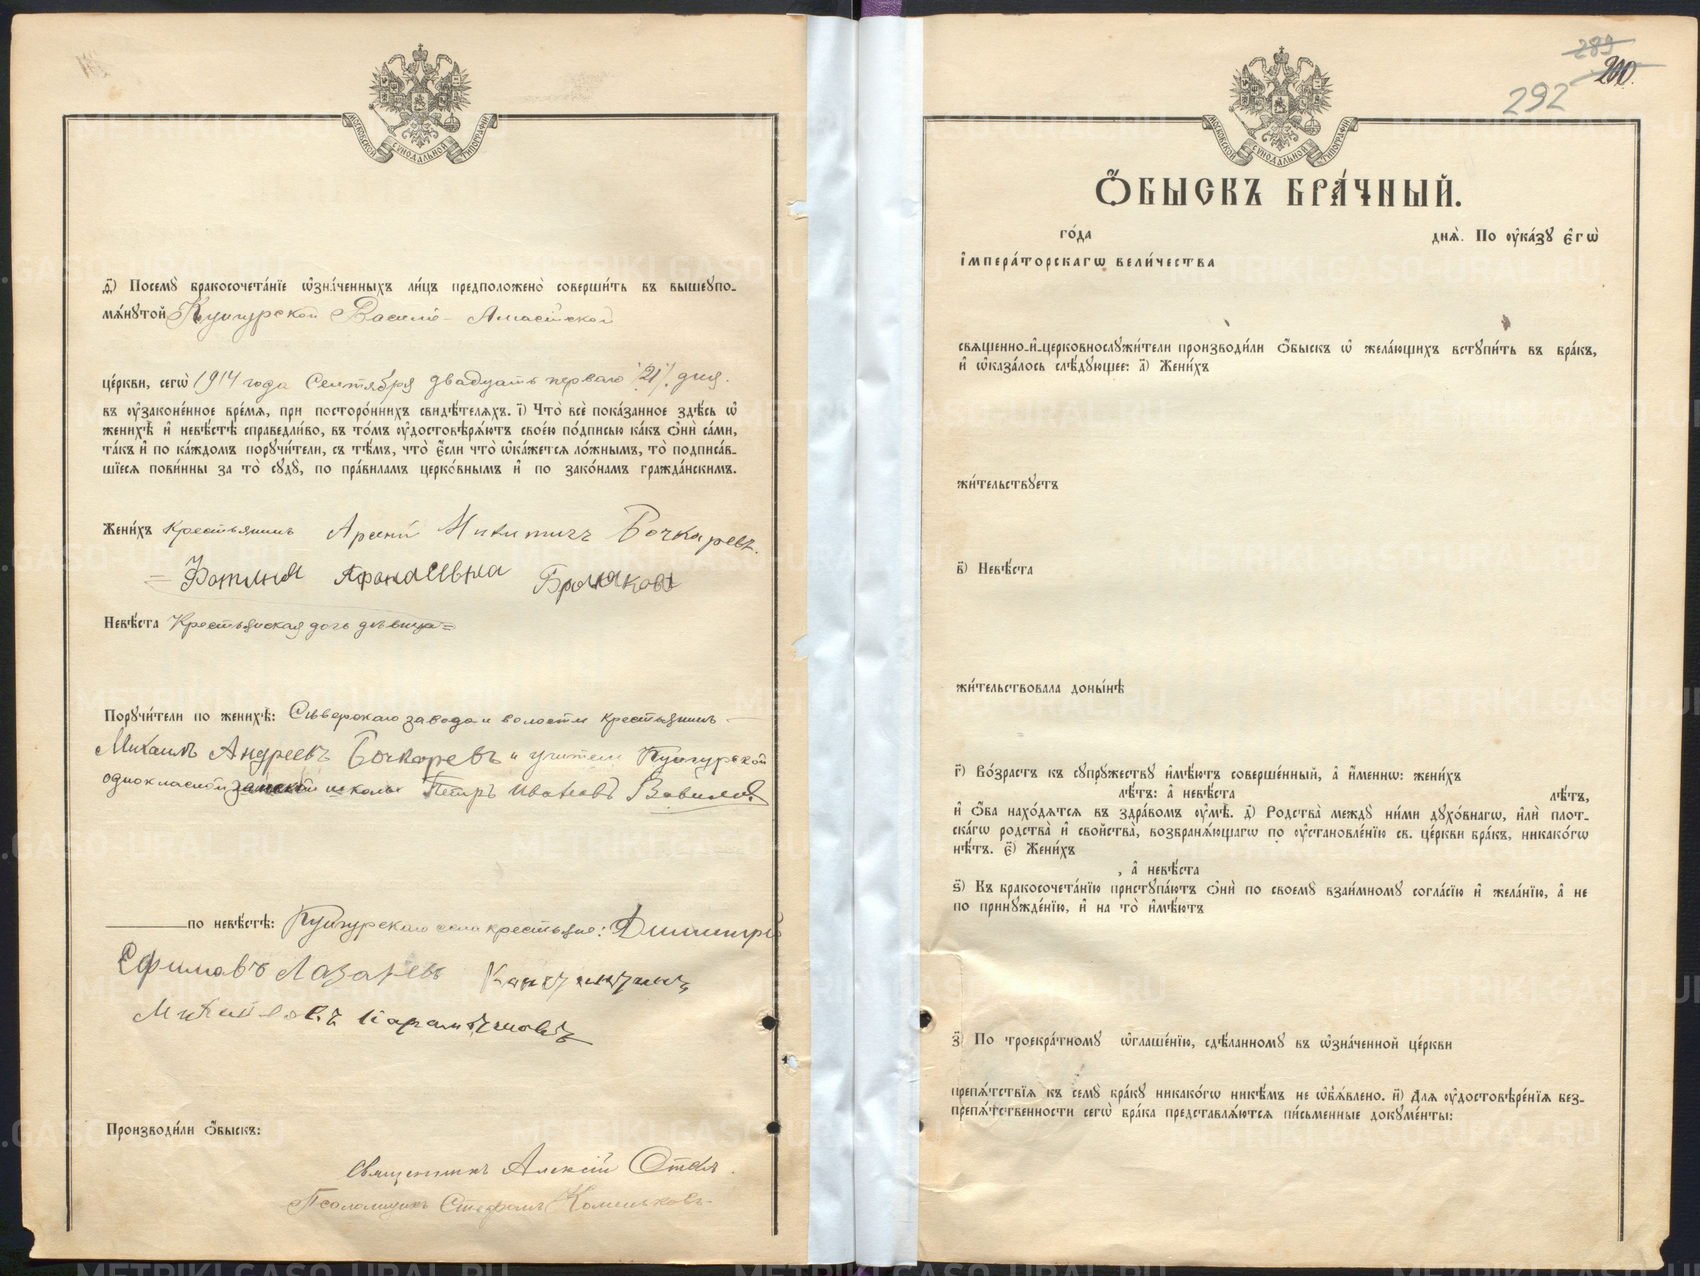 МОСКОВСКОЙ СѴНОДАЛЬНОЙ ТИПОГРАФІИ
ѳ҃) Посемꙋ̀ бракосочета́нїе ѡ҆зна́ченныхъ ли́цъ предположено̀ соверши́ть въ вышеꙋпо-
мѧ́нꙋтой Кунгурской Василіе-Амасійской
це́ркви, сегѡ̀ 1914 года Сентября двадцать перваго "21". дня.
въ ᲂу҆зако́ненное вре́мѧ, при посторо́ннихъ свидѣ́телѧхъ. і҃) Что̀ всѐ пока́занное здѣ́сь ѡ҆
женихѣ̀ и҆ невѣ́стѣ справедли́во, въ то́мъ ᲂу҆достовѣрѧ́ютъ свое́ю по́дписью ка́къ ѻ҆нѝ са́ми,
та́къ и҆ по ка́ждомъ порꙋчи́тели, съ тѣ́мъ, что̀ є҆́сли что̀ ѡ҆ка́жетсѧ ло́жнымъ, то̀ подписа́в-
шїесѧ пови́нны за то̀ сꙋдꙋ̀, по пра́виламъ церко́внымъ и҆ по зако́намъ гражда́нскимъ.
Жени́хъ Крестьянинъ Арсеній Никитичъ Бочкаревъ.
= Фотинія Афонасивна
Невѣ́ста Крестьянская дочь дѣвица =
Порꙋчи́тели по женихѣ̀: Сѣверскаго завода и волости крестьянинъ —
Михаилъ Андреевъ Бочкаревъ и учитель Кунгурской
одноклассной школы Петръ Ивановъ Вавиловъ
по невѣ́стѣ: Кунгурскаго села крестьяне: Димитрій
Ефимовъ Лазаревъ Констянтинъ
Михайловъ
Производи́ли ѻ҆́быскъ:
Священникъ Алексій
Псаломщикъ Стефанъ
289
290.
292
МОСКОВСКОЙ СѴНОДАЛЬНОЙ ТИПОГРАФІИ
Ѻ҆́БЫСКЪ БРА́ЧНЫЙ.
го́да днѧ̀. По ᲂу҆ка́зꙋ є҆гѡ̀
і҆мпера́торскагѡ вели́чества
свѧще́нно-и҆-церковнослꙋжи́тели производи́ли ѻ҆́быскъ ѡ҆ жела́ющихъ встꙋпи́ть въ бра́къ,
и҆ ѡ҆каза́лось слѣ́дꙋющее: а҃) Жени́хъ
жи́тельствꙋетъ
в҃) Невѣ́ста
жи́тельствовала доны́нѣ
г҃) Во́зрастъ къ сꙋпрꙋ́жествꙋ и҆мѣ́ютъ соверше́нный, а҆ и҆́меннѡ: жени́хъ
лѣ́тъ: а҆ невѣ́ста лѣ́тъ,
и҆ ѻ҆́ба нахо́дѧтсѧ въ здра́вомъ ᲂу҆мѣ̀. д҃) Родства̀ междꙋ̀ ни́ми дꙋхо́внагѡ, и҆лѝ плот-
ска́гѡ родства̀ и҆ свойства̀, возбранѧ́ющагѡ по ᲂу҆становле́нїю св. це́ркви бра́къ, никако́гѡ
нѣ́тъ. є҃) Жени́хъ
, а҆ невѣ́ста
ѕ҃) Къ бракосочета́нїю пристꙋпа́ютъ ѻ҆нѝ по своемꙋ̀ взаи́мномꙋ согла́сїю и҆ жела́нїю, а҆ не
по принꙋжде́нїю, и҆ на то̀ и҆мѣ́ютъ
з҃) По троекра́тномꙋ ѡ҆глаше́нїю, сдѣ́ланномꙋ въ ѡ҆зна́ченной це́ркви
препѧ́тствїѧ къ семꙋ̀ бра́кꙋ никако́гѡ никѣ́мъ не ѡ҆б̾ѧ́влено. и҃) Длѧ ᲂу҆достовѣре́нїѧ без-
препѧ́тственности сегѡ̀ бра́ка представлѧ́ютсѧ пи́сьменные докꙋме́нты:
METRIKI.GASO-URAL.RU